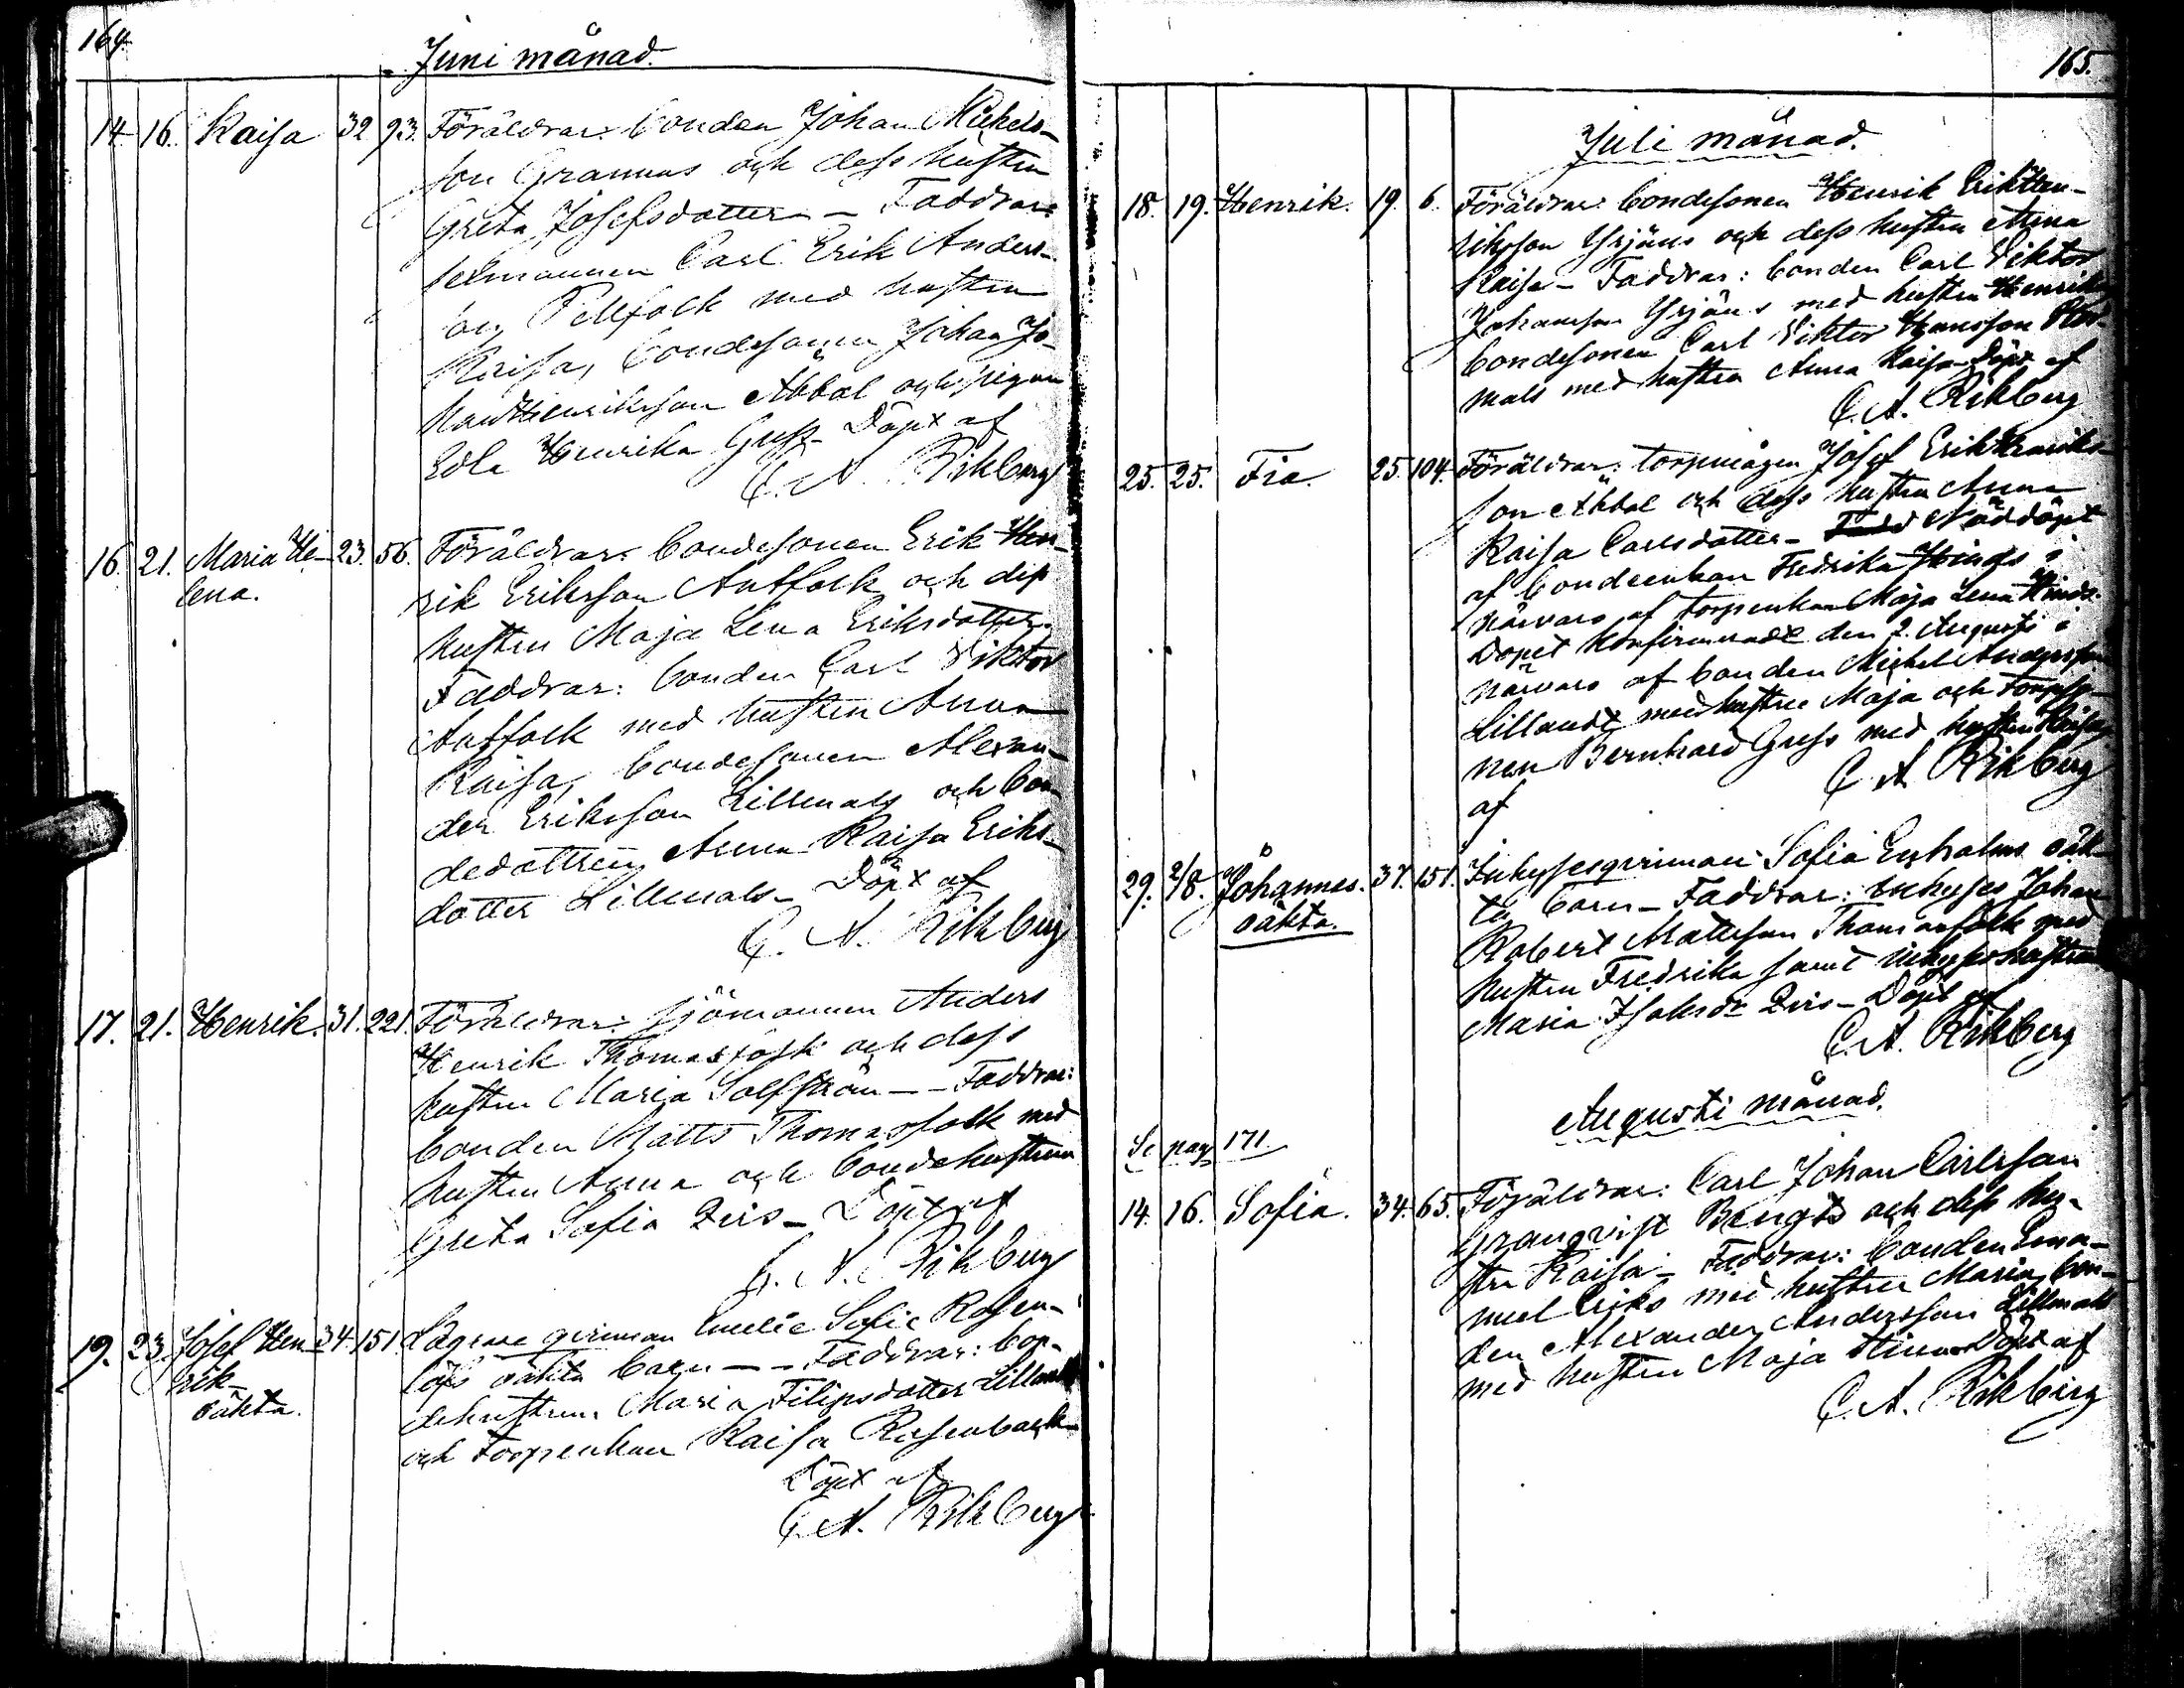 164.
Juni månad.
14. 16. Kaisa 32. 93. Föräldrar: bonden Johan Mickels-
son Grannas och dess hustru
Greta Josefsdotter – Faddrar:
Carl Erik Anders-
son Pellfolk med hustru
Kaisa, bondesonen Johan Ja-
Henriksson Abbal och pigan
Edla Henrika Guss. Döpt af
C. A. Rikberg
16. 21. Maria He- 23. 56. Föräldrar: bondesonen Erik Hen-
lena.
rik Eriksson Antfolk och dess
hustru Maja Lena Eriksdotter.
Faddrar: bonden Carl Viktor
Antfolk med hustru Anna
Kaisa, bondesonen Alexan-
der Eriksson Lillmals och bon-
dedottren Anna Kaisa Eriks-
dotter Lillmals – Döpt af
C. A. Rikberg
17. 21. Henrik. 31. 221. Föräldrar: sjömannen Anders
Henrik Thomasfolk och dess
hustru Maria Solfström – – Faddrar:
bonden Matts Thomasfolk med
hustru Anna och bondehustrun
Greta Sofia Zeis – Döpt af
C. A. Rikberg
19. 23. Josef Hen- 34. 151. Lägrade qvinnan Emelie Sofie Rosen-
rik
oäkta.
löfs oäkta barn – – Faddrar: bon-
dehustrun Maria Filipsdotter Lillmals
och torpenkan Kaisa Rosenback
Döpt af
C. A. Rikberg
165.
Juli månad.
18. 19. Henrik. 19. 6. Föräldrar: bondesonen Henrik Erik Hen-
riksson Yrjäns och dess hustru Anna
Kaisa – Faddrar: bonden Carl Viktor
Johansson Yrjäns med hustru Henrika
bondesonen Carl Viktor Hansson
mals med hustru Anna Kaisa – Döpt af
C. A. Rikberg
25. 25. Fia. 25. 104. Föräldrar: torpmågen Josef Erik Henriks-
son Abbal och dess hustru Anna
Kaisa Carlsdotter – Nöddöpt
af bondeenkan Fredrika Hinds i
närvaro af torpenkan Maja Lena Hinds.
Dopet konfirmeradt den 2. Augusti i
närvaro af bonden Mickel Andersson
Lillandt med hustru Maja och torpa-
ren Bernhard Guss med hustru Kaisa
af
C. A. Rikberg
29. 2/8. Johannes. 37. 151. Inhysesqvinnan Sofia Enholms oäk-
oäkta.
ta barn – Faddrar: inhyses Johan
Robert Mattsson Thomasfolk med
hustru Fredrika samt inhyseshustrun
Maria Isaksdr Zeis – Döpt af
C. A. Rikberg
Augusti månad.
Se pag 171
14. 16. Sofia. 34. 65. Föräldrar: Carl Johan Carlsson
Granqvist Bengts och dess hu-
stru Kaisa – Faddrar: bonden Ema-
nuel Eriks med hustru Maria, bon-
den Alexander Andersson Lillmals
med hustru Maja Stina – Döpt af
C. A. Rikberg